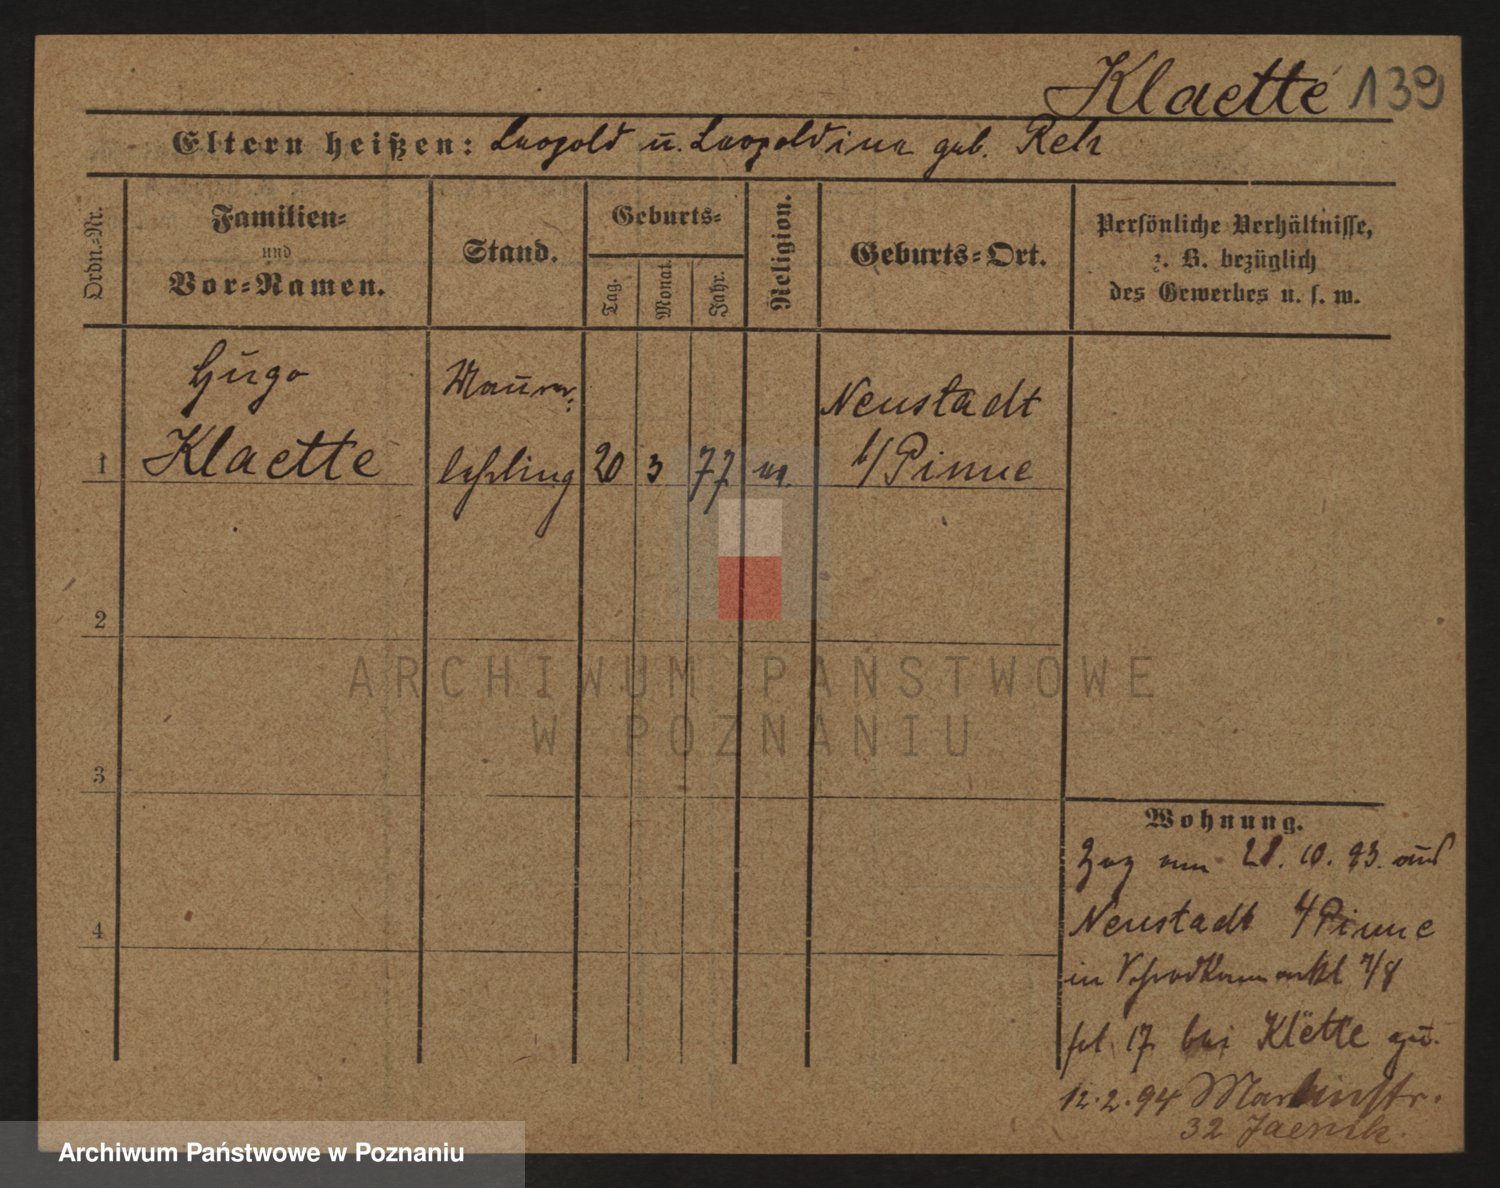 Klaette 139
Eltern heißen: Leopold u. Leopoldine geb. Reh
Ordn.-Nr.
Familien-
und
Vor-Namen.
Stand.
Geburts-
Tag.
Monat.
Jahr.
Religion.
Geburts-Ort.
Persönliche Verhältnisse,
z. B. bezüglich
des Gewerbes u. s. w.
Hugo
Maurer-
Neustadt
1 Klaette lehrling 20 3 77
b/Pinne
2
3
4
Wohnung.
Zog am 28. 10. 93. aus
Neustadt b/Pinne
in 7/8
17 bei Klëtte
12.2.94 Martinstr.
32
ARCHIWUM PAŃSTWOWE
W POZNANIU
Archiwum Państwowe w Poznaniu